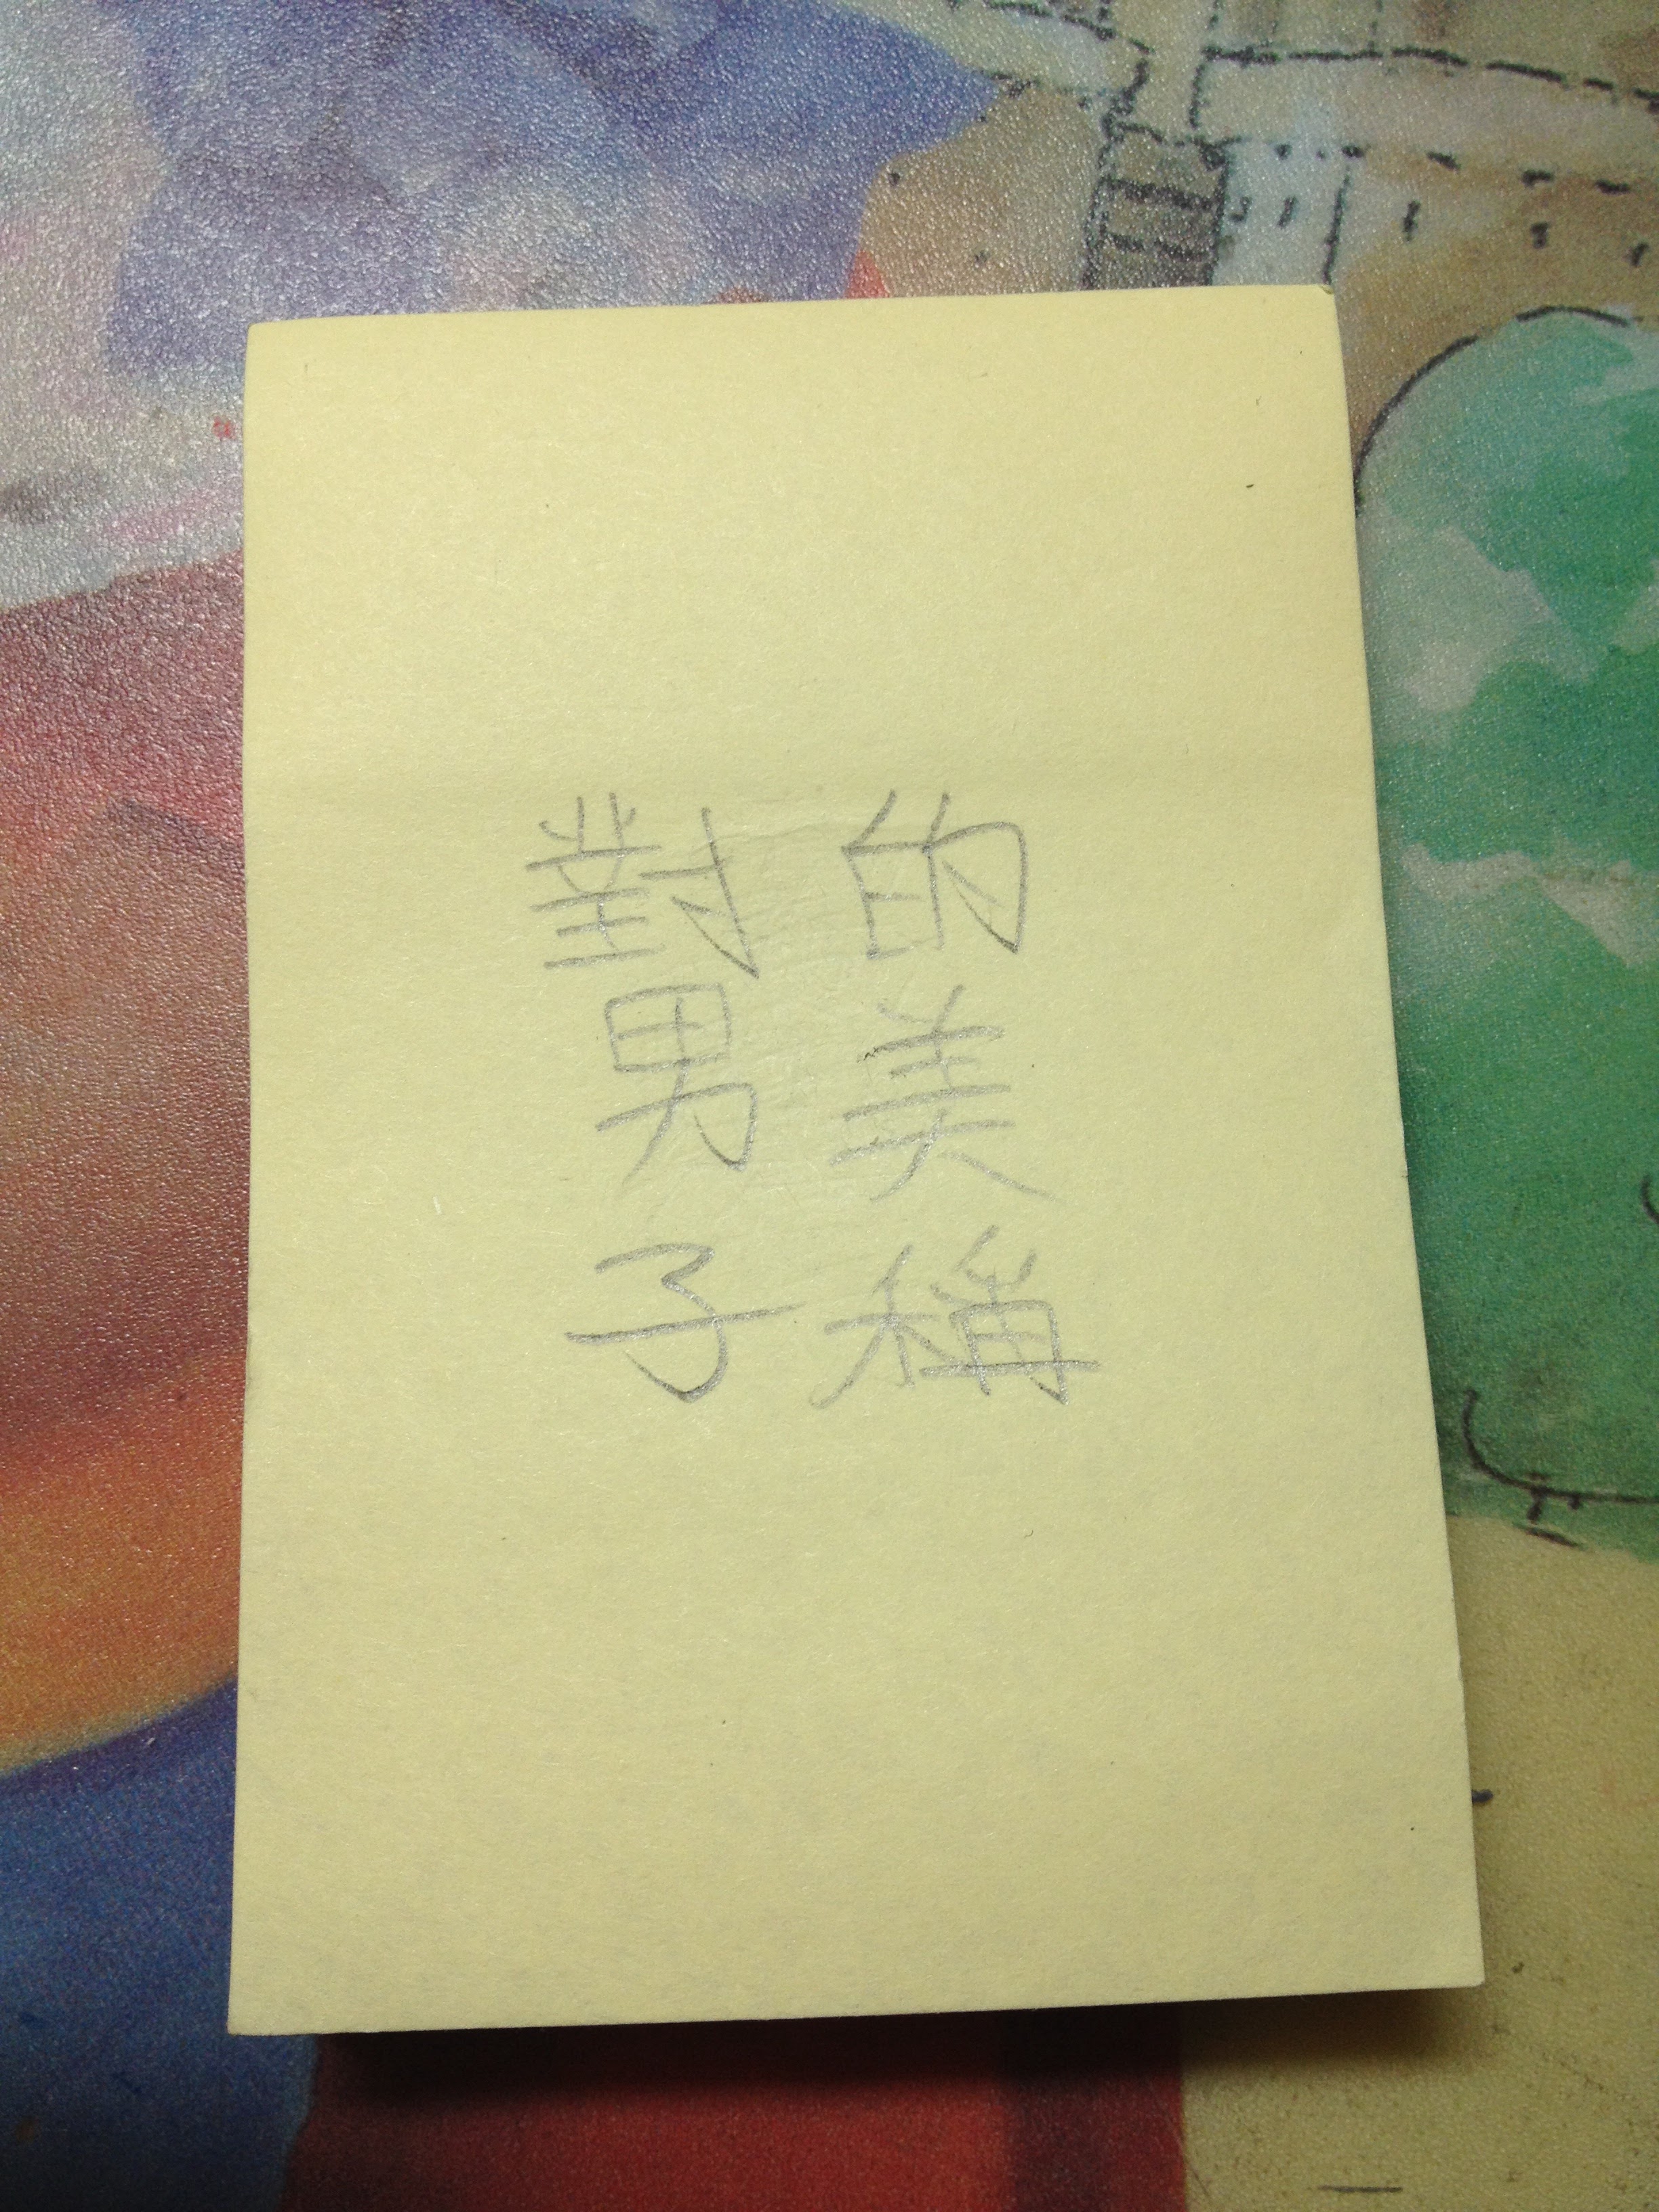 對男子
的美稱